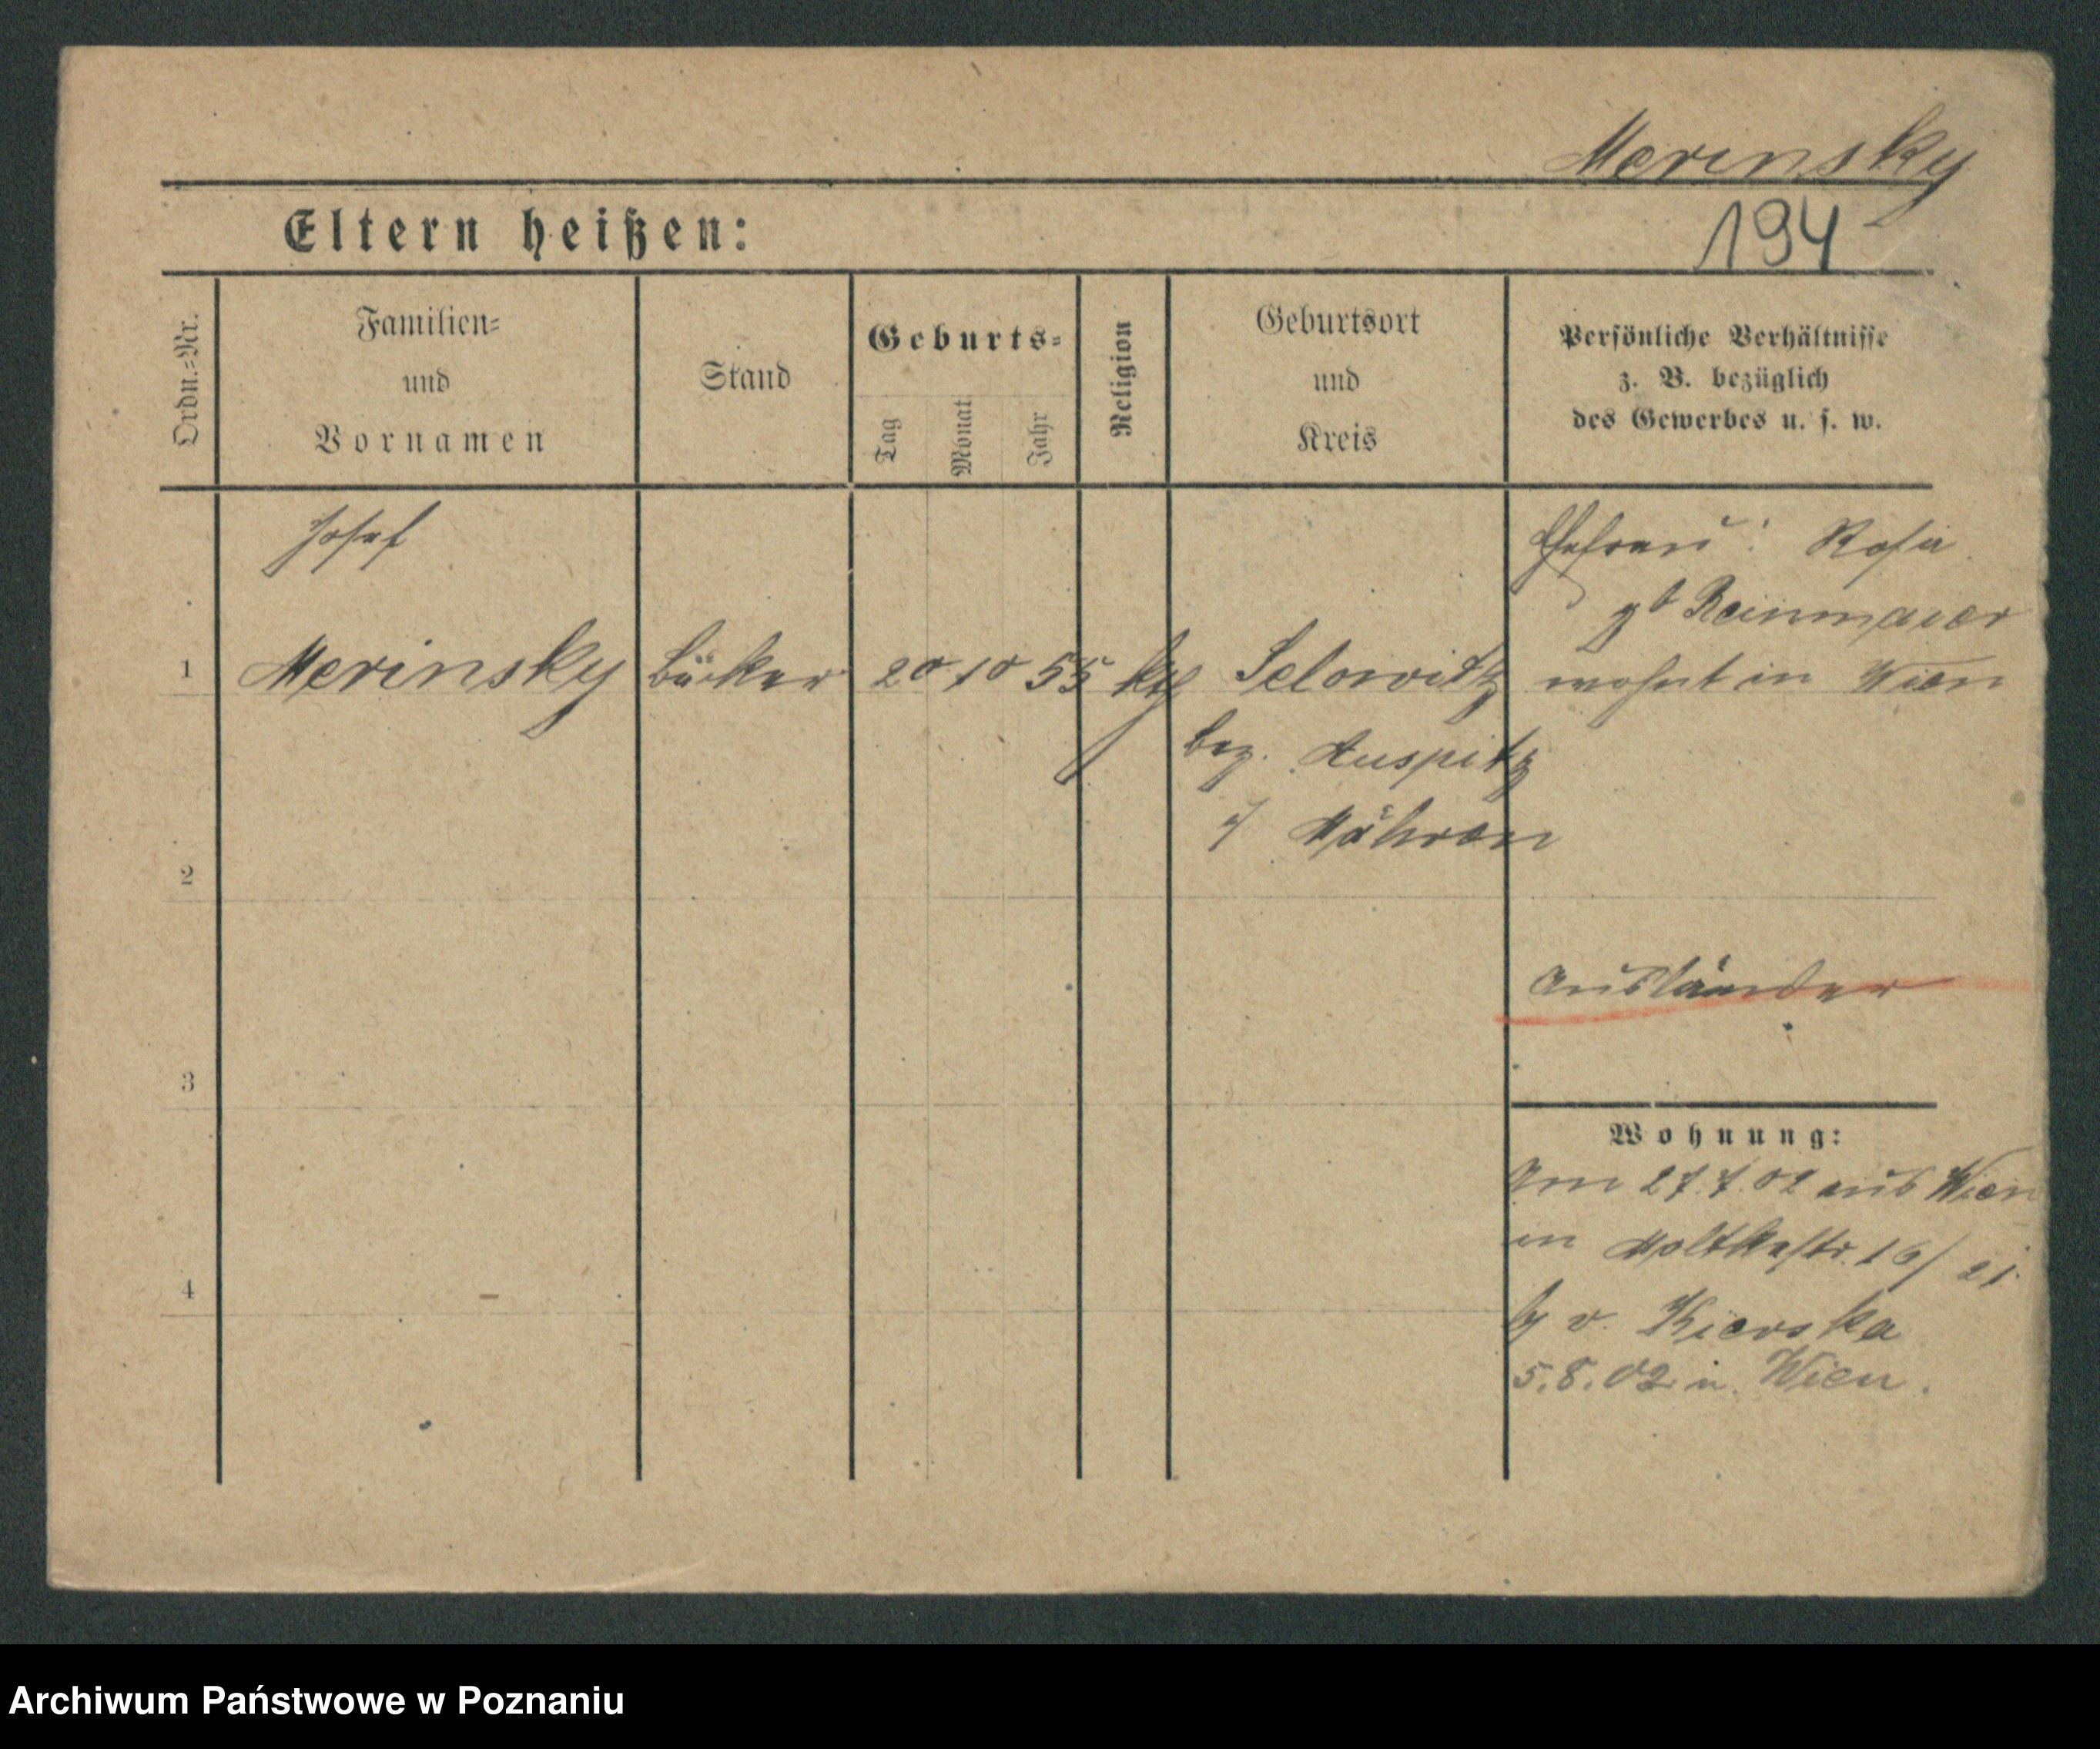 Merinsky
194
Eltern heißen:
Ordn.=Nr.
Familien=
und
Vornamen
Stand
Geburts=
Tag
Monat
Jahr
Religion
Geburtsort
und
Kreis
Persönliche Verhältnisse
z. B. bezüglich
des Gewerbes u. s. w.
Josef
1 Merinsky Bäcker 20 10 55 kth Selowitz
bez. Auspitz
i/ Mähren
Ehefrau: Rosa
gb Reinmaier
wohnt in Wien
2
Ausländer
3
Wohnung:
Am 27.7.02 aus Wien
in Moltkestr. 16/21.
by v. Kierska
5.8.02 n. Wien.
4
Archiwum Państwowe w Poznaniu